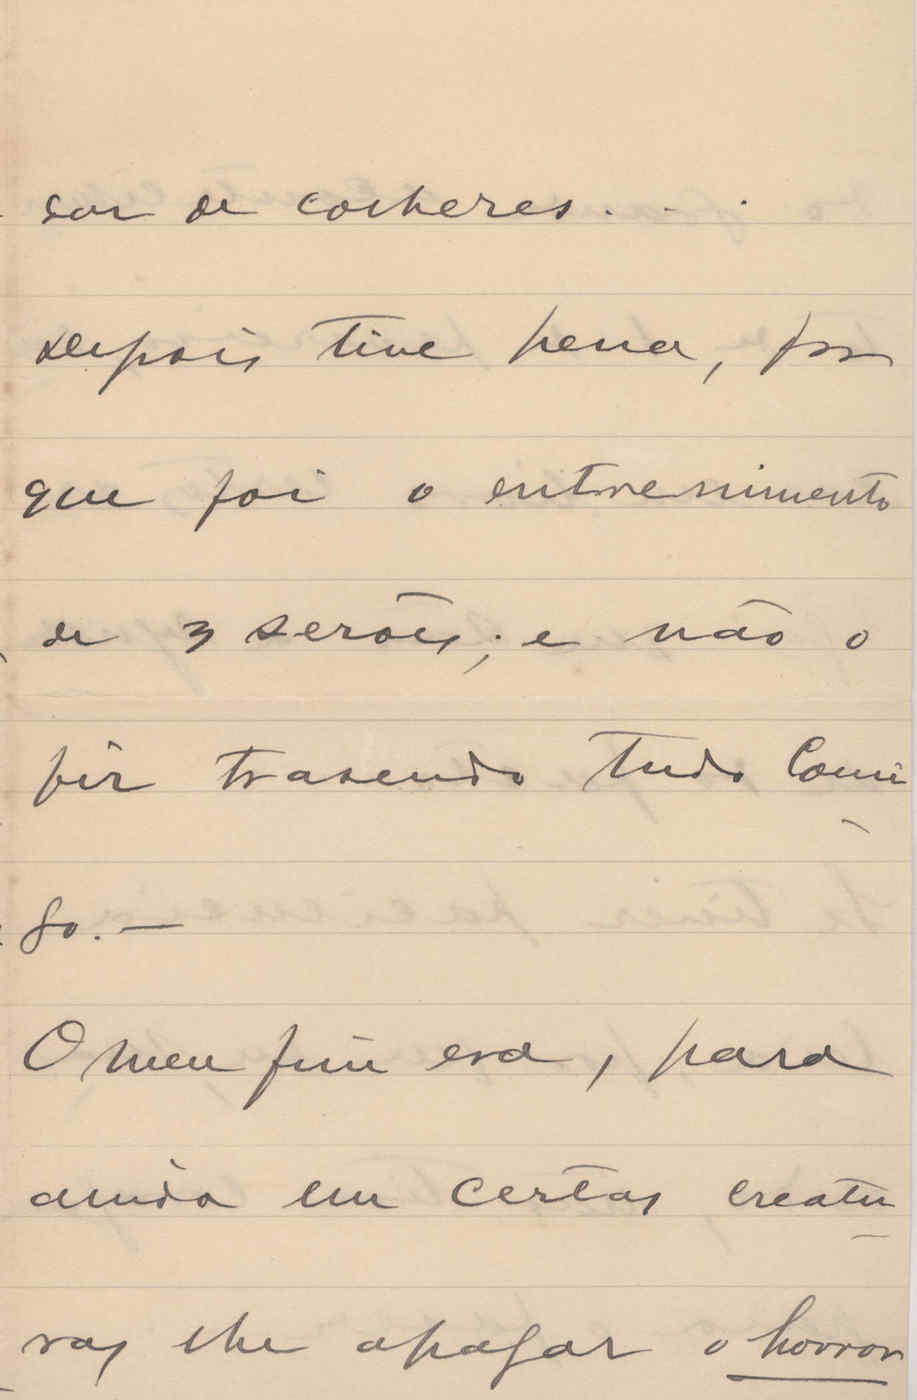 sar de colheres...
Depois tive pena, por
que foi o entrenimento
de 3 serões; e não o
fiz trasendo tudo comi
go. —
O meu fim era, para
ainda em certas creatu
ras lhe apagar o horror